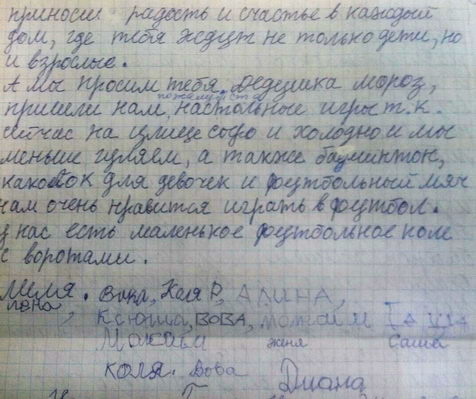 приноси радость и счастье в каждый
дом, где тебя ждут не только дети, но
и взрослые.
А мы просим тебя, Дедушка мороз,
пожалуйста
пришли нам, настольные игры т.к.
сейчас на улице сыро и холодно и мы
меньше гуляем, а также бадминтон,
для девочек и футбольный мяч
нам очень нравится играть в футбол.
У нас есть маленькое футбольное поле
с воротами.
Вика, Коля Р, АЛИНА,
лена,
Ксюша, ВОВА,
Максим женя Саша
Коля. Вова Диана